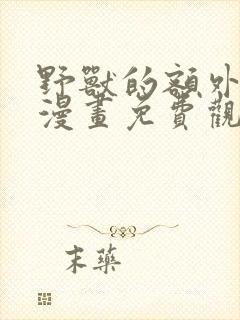 野獸的額外
漫畫免費觀
末藥